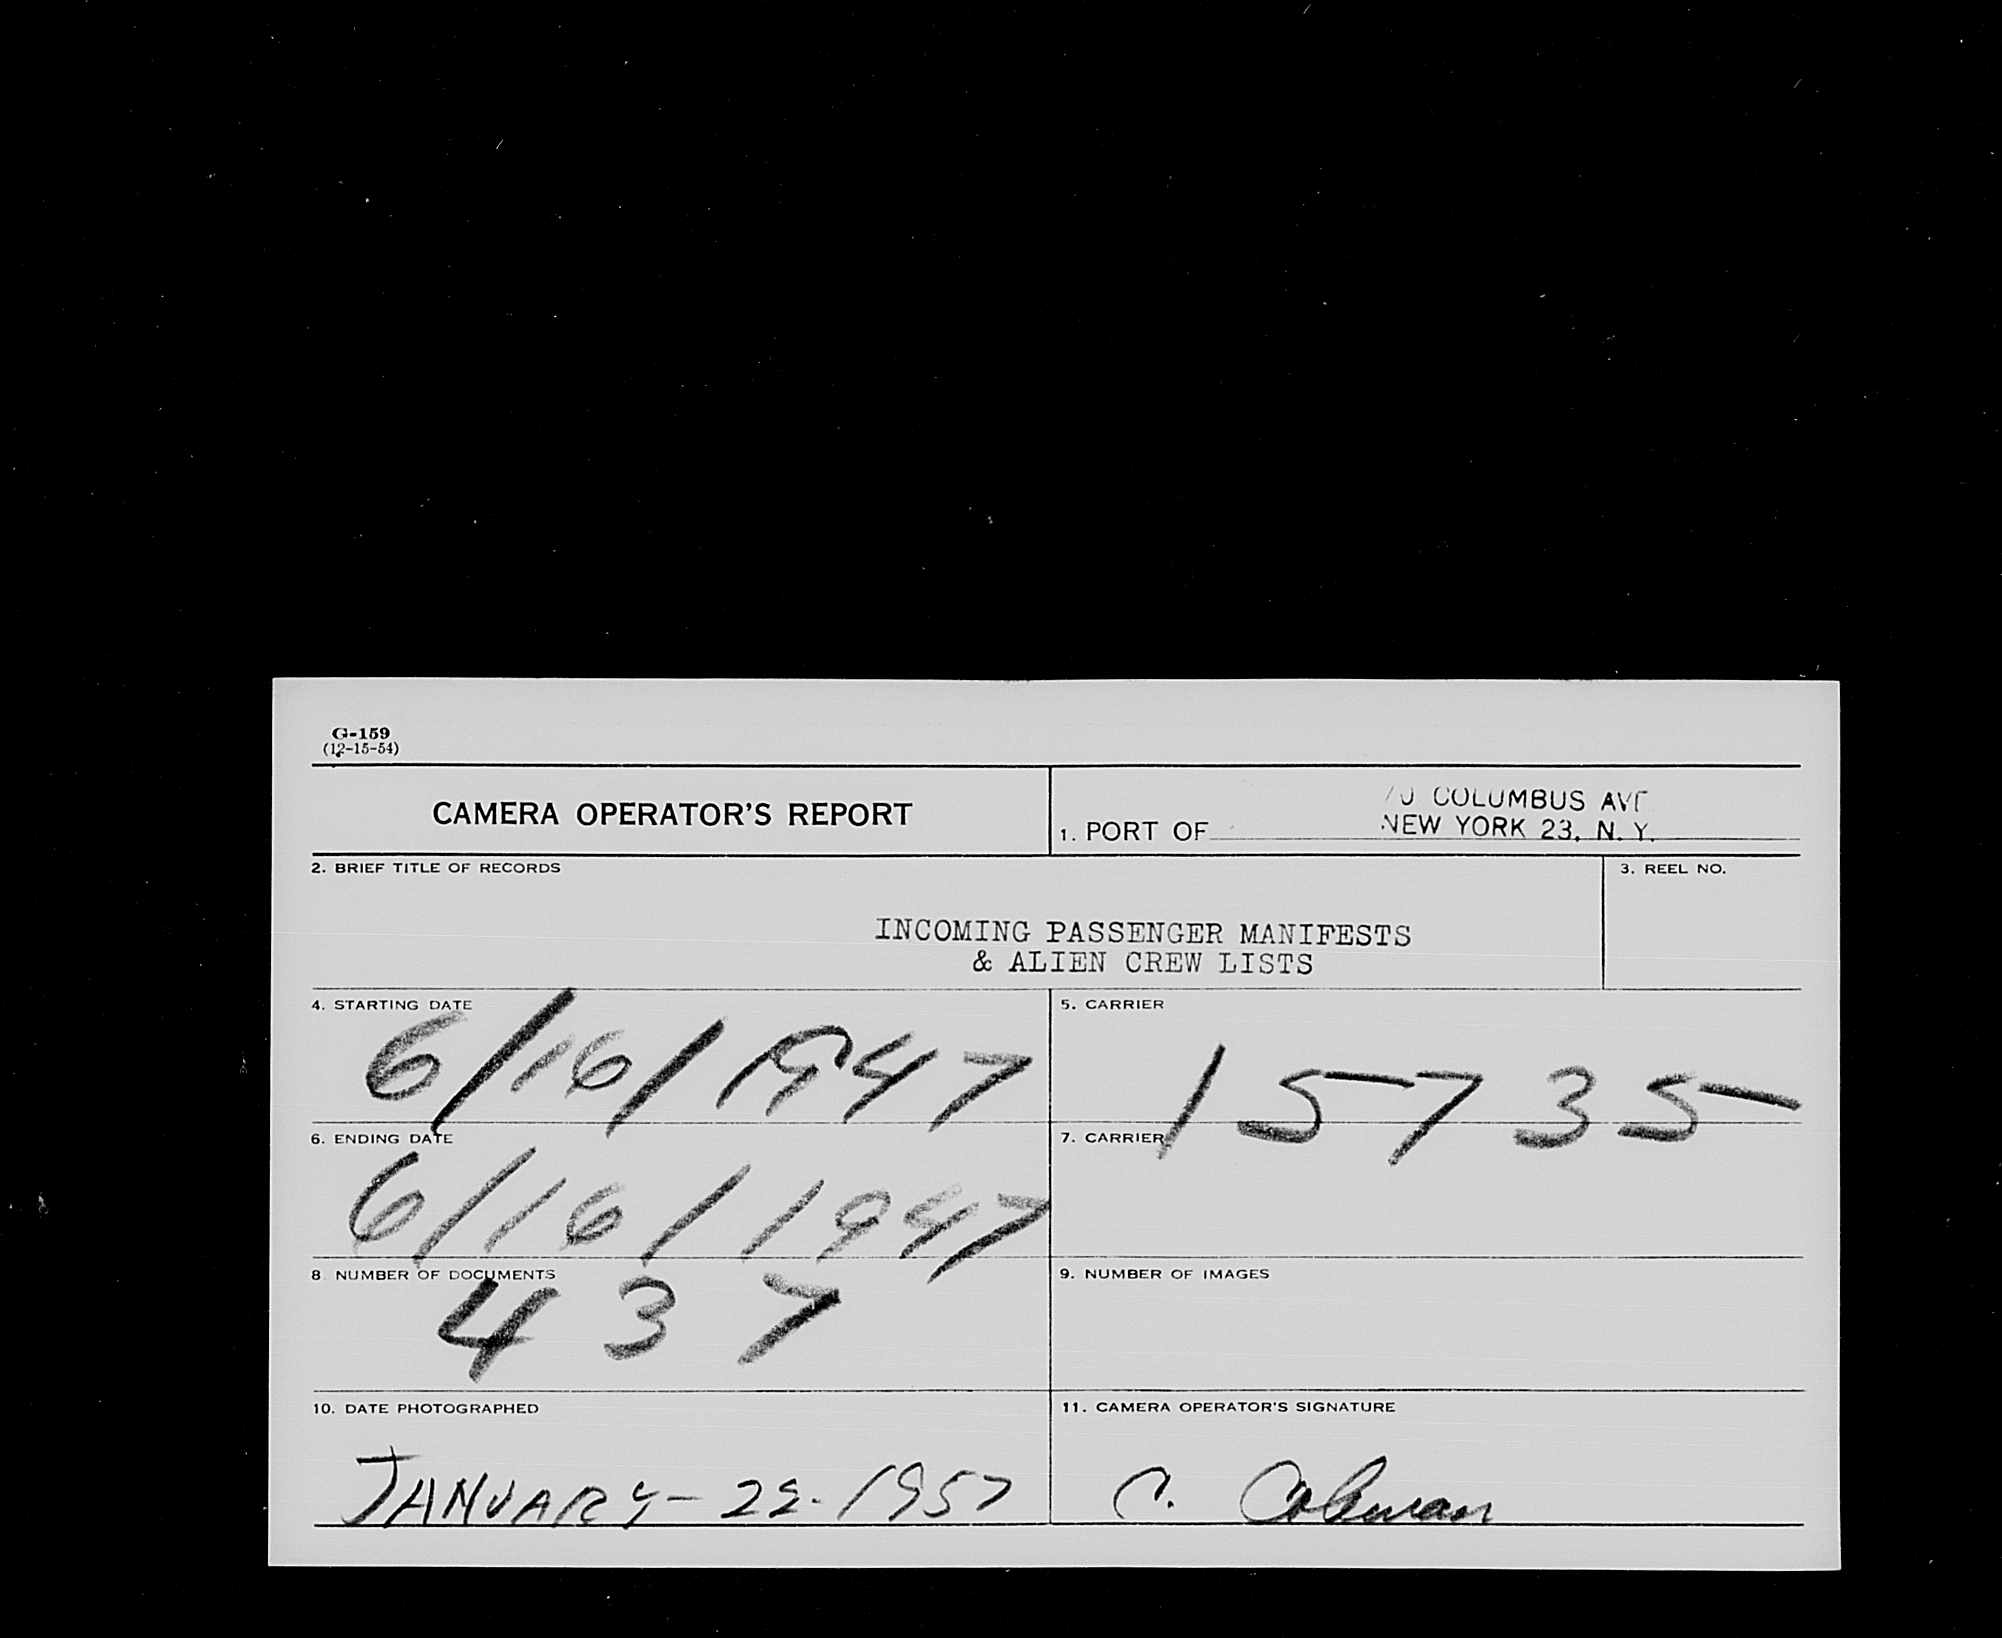 G-159
(12-15-54)
CAMERA OPERATOR'S REPORT
70 COLUMBUS AVE
1. PORT OF NEW YORK 23, N. Y.
2. BRIEF TITLE OF RECORDS
3. REEL NO.
INCOMING PASSENGER MANIFESTS
& ALIEN CREW LISTS
4. STARTING DATE
6/16/1947
5. CARRIER
15735
6. ENDING DATE
6/16/1947
7. CARRIER
8 NUMBER OF DOCUMENTS
437
9. NUMBER OF IMAGES
10. DATE PHOTOGRAPHED
JANUARY-22-1957
11. CAMERA OPERATOR'S SIGNATURE
C. Coleman